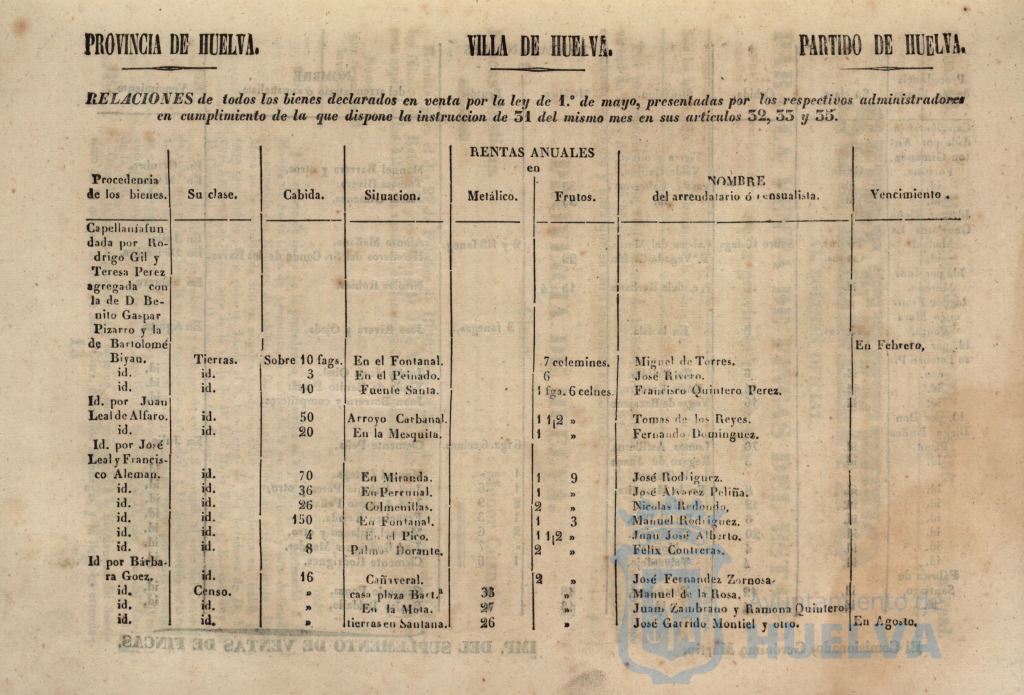 PROVINCIA DE HUELVA. VILLA DE HUELVA. PARTIDO DE HUELVA.
RELACIONES de todos los bienes declarados en venta por la ley de 1.º de mayo, presentadas por los respectivos administradores
en cumplimiento de la que dispone la instruccion de 31 del mismo mes en sus articulos 32, 33 y 35.
RENTAS ANUALES
en
Procedencia NOMBRE
de los bienes. Su clase. Cabida. Situacion. Metálico. Frutos. del arrendatario ó censualista. Vencimiento.
Capellanía fun
dada por Ro-
drigo Gil y
Teresa Perez
agregada con
la de D. Be-
nito Gaspar
Pizarro y la
de Bartolomé En Febrero,
Biyan. Tierras. Sobre 10 fags. En el Fontanal. 7 celemines. Miguel de Torres.
id. id. 3 En el Peinado. 6 José Rivero.
id. id. 10 Fuente Santa. 1 fga. 6 celnes. Francisco Quintero Perez.
Id. por Juan
Leal de Alfaro. id. 50 Arroyo Carbanal. 1 1¡2 » Tomas de los Reyes.
id. id. 20 En la Mesquita. 1 » Fernando Dominguez.
Id. por José
Leal y Francis-
co Aleman. id. 70 En Miranda. 1 9 José Rodriguez.
id. id. 36 En Perrunal. 1 » José Alvarez Peliña.
id. id. 26 Colmenillas. 2 » Nicolas Redondo,
id. id. 150 En Fontanal. 1 3 Manuel Rodriguez.
id. id. 4 En el Pico. 1 1¡2 » Juan José Alberto.
id. id. 8 Palmar Dorante. 2 » Felix Contreras.
Id por Bárba-
ra Goez. id. 16 Cañaveral. 2 » José Fernandez Zornosa.
id. Censo. » casa plaza Bart.ª 33 » Manuel de la Rosa.
id. id. » En la Mota. 27 » Juan Zambrano y Ramona Quintero
id. id. » tierras en Santana. 26 » José Garrido Montiel y otro. En Agosto,
Ayuntamiento de
HUELVA